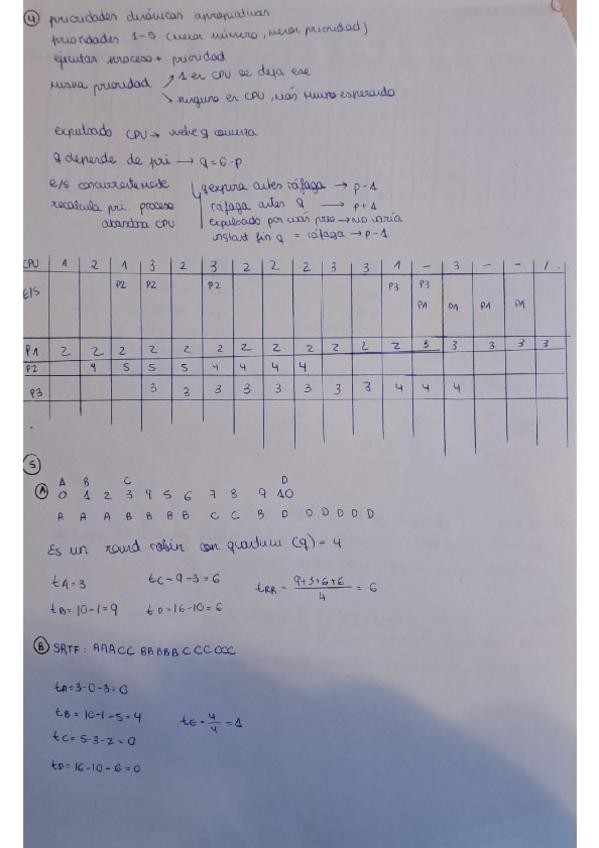 ④ prioridades dinámicas apropiativas
prioridades 1-5 (menor número, menor prioridad)
ejecutar proceso + prioridad
misma prioridad ↗ 1 en CPU se deja ese
↘ ninguno en CPU, más tiempo esperando
expulsado CPU →
q depende de pri → q = 6-p
e/s concurrentemente
recalcula pri. proceso abandona CPU
q expira antes ráfaga → p-1
ráfaga antes q → p+1
expulsado por más prio → No varía
instant fin q = ráfaga → p-1
CPU 1 2 1 3 2 3 2 2 2 3 3 1 - 3 - - 1
E/S P2 P2 P2 P3 P3
P1 P1 P1 P1
P1 2 2 2 2 2 2 2 2 2 2 2 2 3 3 3 3 3
P2 4 5 5 5 4 4 4 4
P3 3 3 3 3 3 3 3 3 4 4 4
⑤
A B C D
Ⓐ 0 1 2 3 4 5 6 7 8 9 10
A A A B B B B C C B D D D D D D
Es un round robin con quantum (q) = 4
tA = 3 tC = 9-3 = 6
tB = 10-1 = 9 tD = 16-10 = 6
tRR = 9+3+6+6 / 4 = 6
Ⓑ SRTF:
tA = 3-0-3 = 0
tB = 10-1-5 = 4
tE = 4/4 = 1
tC = 5-3-2 = 0
tD = 16-10-6 = 0